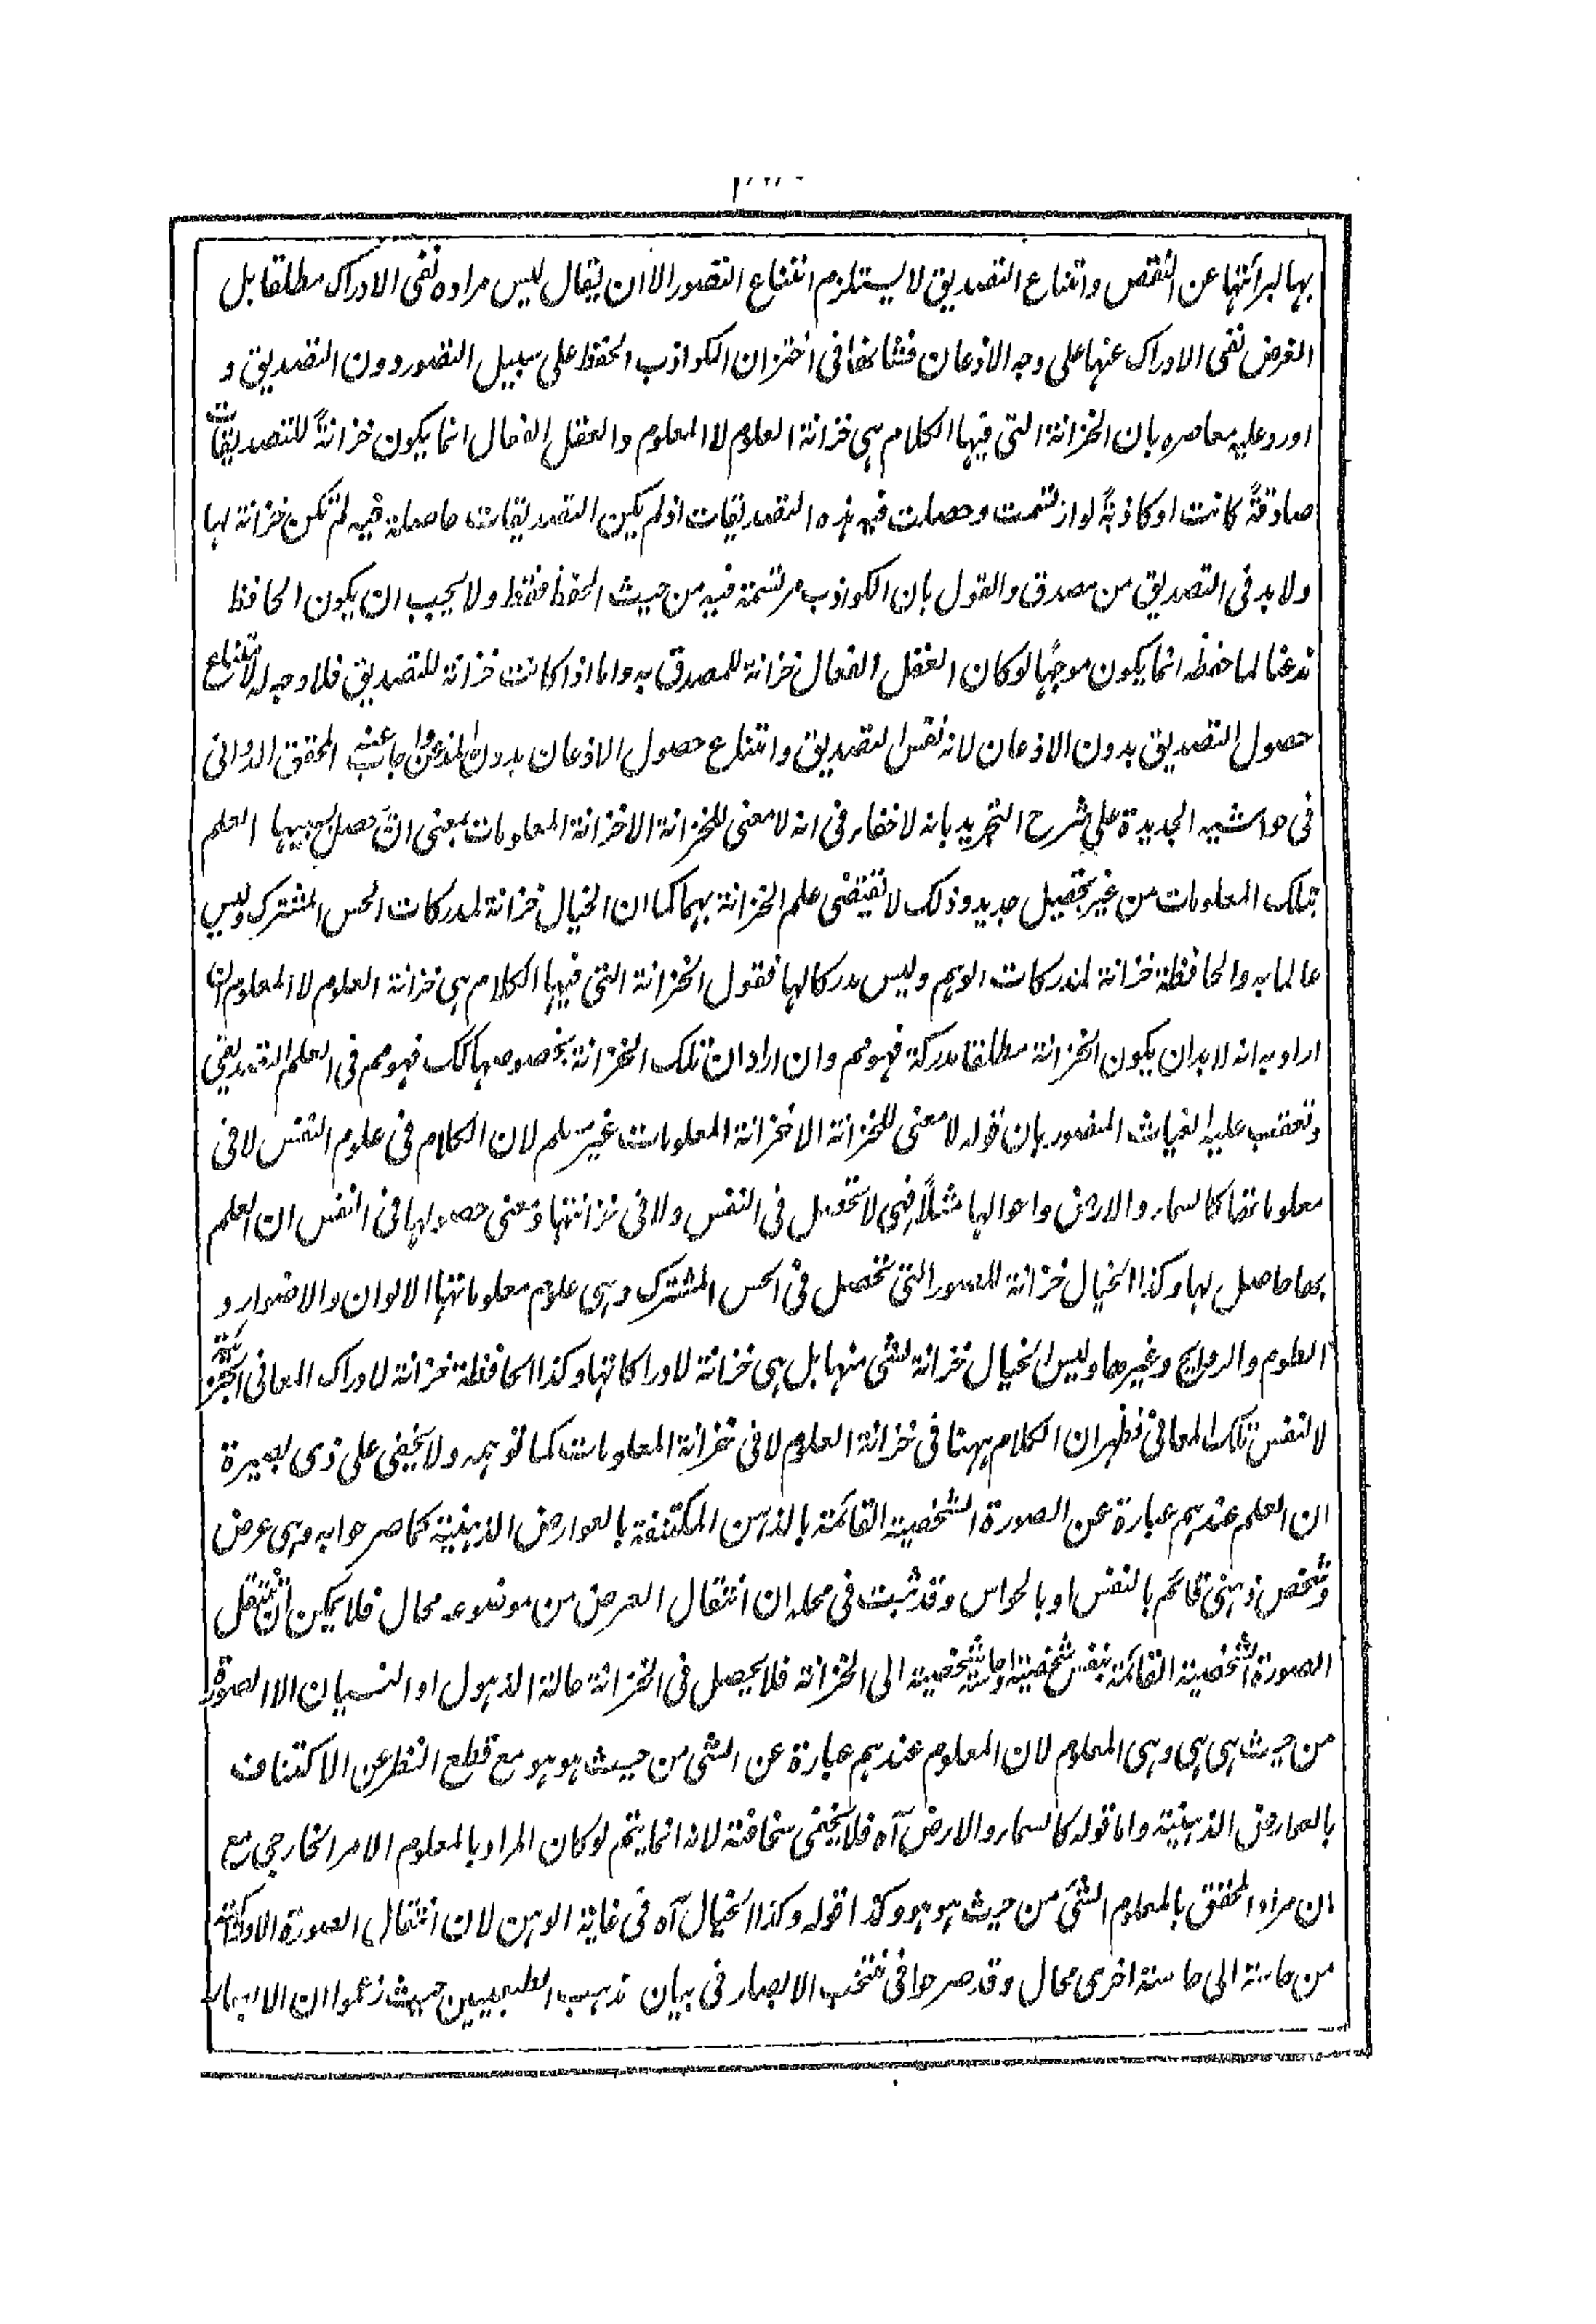 بها لبرأتها عن النقص وامتناع التصديق لا يستلزم امتناع التصور الا ان يقال ليس مراده نفى الادراك مطلقا بل
الغرض نفى الادراك عنها على وجه الاذعان فشانها فى اختزان الكواذب الحفظ على سبيل التصور دون التصديق و
اورد عليه معاصره بان الخزانة التى فيها الكلام هى خزانة العلوم لا المعلوم والعقل الفعال انما يكون خزانةً للتصديقات
صادقةً كانت او كاذبةً لو ارتسمت وحصلت فيه هذه التصديقات اذ لم يكن التصديقات حاصلة فيه لم تكن خزانة لها
ولا بد فى التصديق من مصدق والقول بان الكواذب مرتسمة فيه من حيث الحفظ فقط ولا يجب ان يكون الحافظ
مذعنا لما حفظه انما يكون موجهًا لو كان العقل الفعال خزانة للمصدق به واما اذا كانت خزانة للتصديق فلا وجه له لامتناع
حصول التصديق بدون الاذعان لانه نفس التصديق وامتناع حصول الاذعان بدون المذعن واجاب عنه المحقق الدوانى
فى حواشيه الجديدة على شرح التجريد بانه لا خفاء فى انه لا معنى للخزانة الا خزانة المعلومات بمعنى ان حصل بسببها العلم
بتلك المعلومات من غير تحصيل جديد وذلك لا تقتضى علم الخزانة بهما كما ان الخيال خزانة لمدركات الحس المشترك وليس
عالما به والحافظة خزانة لمدركات الوهم وليس مدركا لها فقول الخزانة التى فيها الكلام هى خزانة العلوم لا المعلوم ان
اراد به انه لا بد ان يكون الخزانة مطلقا مدركة فهو مم وان اراد ان تلك الخزانة بخصوصها كك فهو مم فى العلم التصديقى
وتعقب عليه الغياث المنصور بان قوله لا معنى للخزانة الا خزانة المعلومات غير مسلم لان الكلام فى علوم النفس لا فى
معلوماتها كالسماء والارض واحوالها مثلًا فهى لا تحصل فى النفس ولا فى خزانتها ومعنى حصولها فى النفس ان العلم
بها حاصل لها وكذا الخيال خزانة للصور التى تحصل فى الحس المشترك وهى علوم معلوماتها الالوان والاضواء و
الطعوم والروايح وغيرها وليس الخيال خزانة لشى منها بل هى خزانة لادراكاتها وكذا الحافظة خزانة لادراك المعانى الجزئية
لا لنفس تلك المعانى فظهر ان الكلام ههنا فى خزانة العلوم لا فى خزانة المعلومات كما توهمه ولا يخفى على ذى بصيرة
ان العلم عندهم عبارة عن الصورة الشخصية القائمة بالذهن المكتنفة بالعوارض الذهنية كما صرحوا به وهى عرض
وشخص ذهنى قائم بالنفس او بالحواس وقد ثبت فى محله ان انتقال العرض من موضوعه محال فلا يمكن ان تنتقل
الصورة الشخصية القائمة بنفس شخصية او حاسة شخصية الى الخزانة فلا يحصل فى الخزانة حالة الذهول او النسيان الا الصورة
من حيث هى هى وهى المعلوم لان المعلوم عندهم عبارة عن الشى من حيث هو هو مع قطع النظر عن الاكتناف
بالعوارض الذهنية واما قوله كالسماء والارض آه فلا يخفى سخافته لانه انما يتم لو كان المراد بالمعلوم الامر الخارجى مع
ان مراد المحقق بالمعلوم الشئ من حيث هو هو وكذا قوله وكذا الخيال آه فى غاية الوهن لان انتقال الصورة الادراكية
من حاسة الى حاسة اخرى محال وقد صرحوا فى مبحث الابصار فى بيان مذهب الطبيعيين حيث زعموا ان الابصار